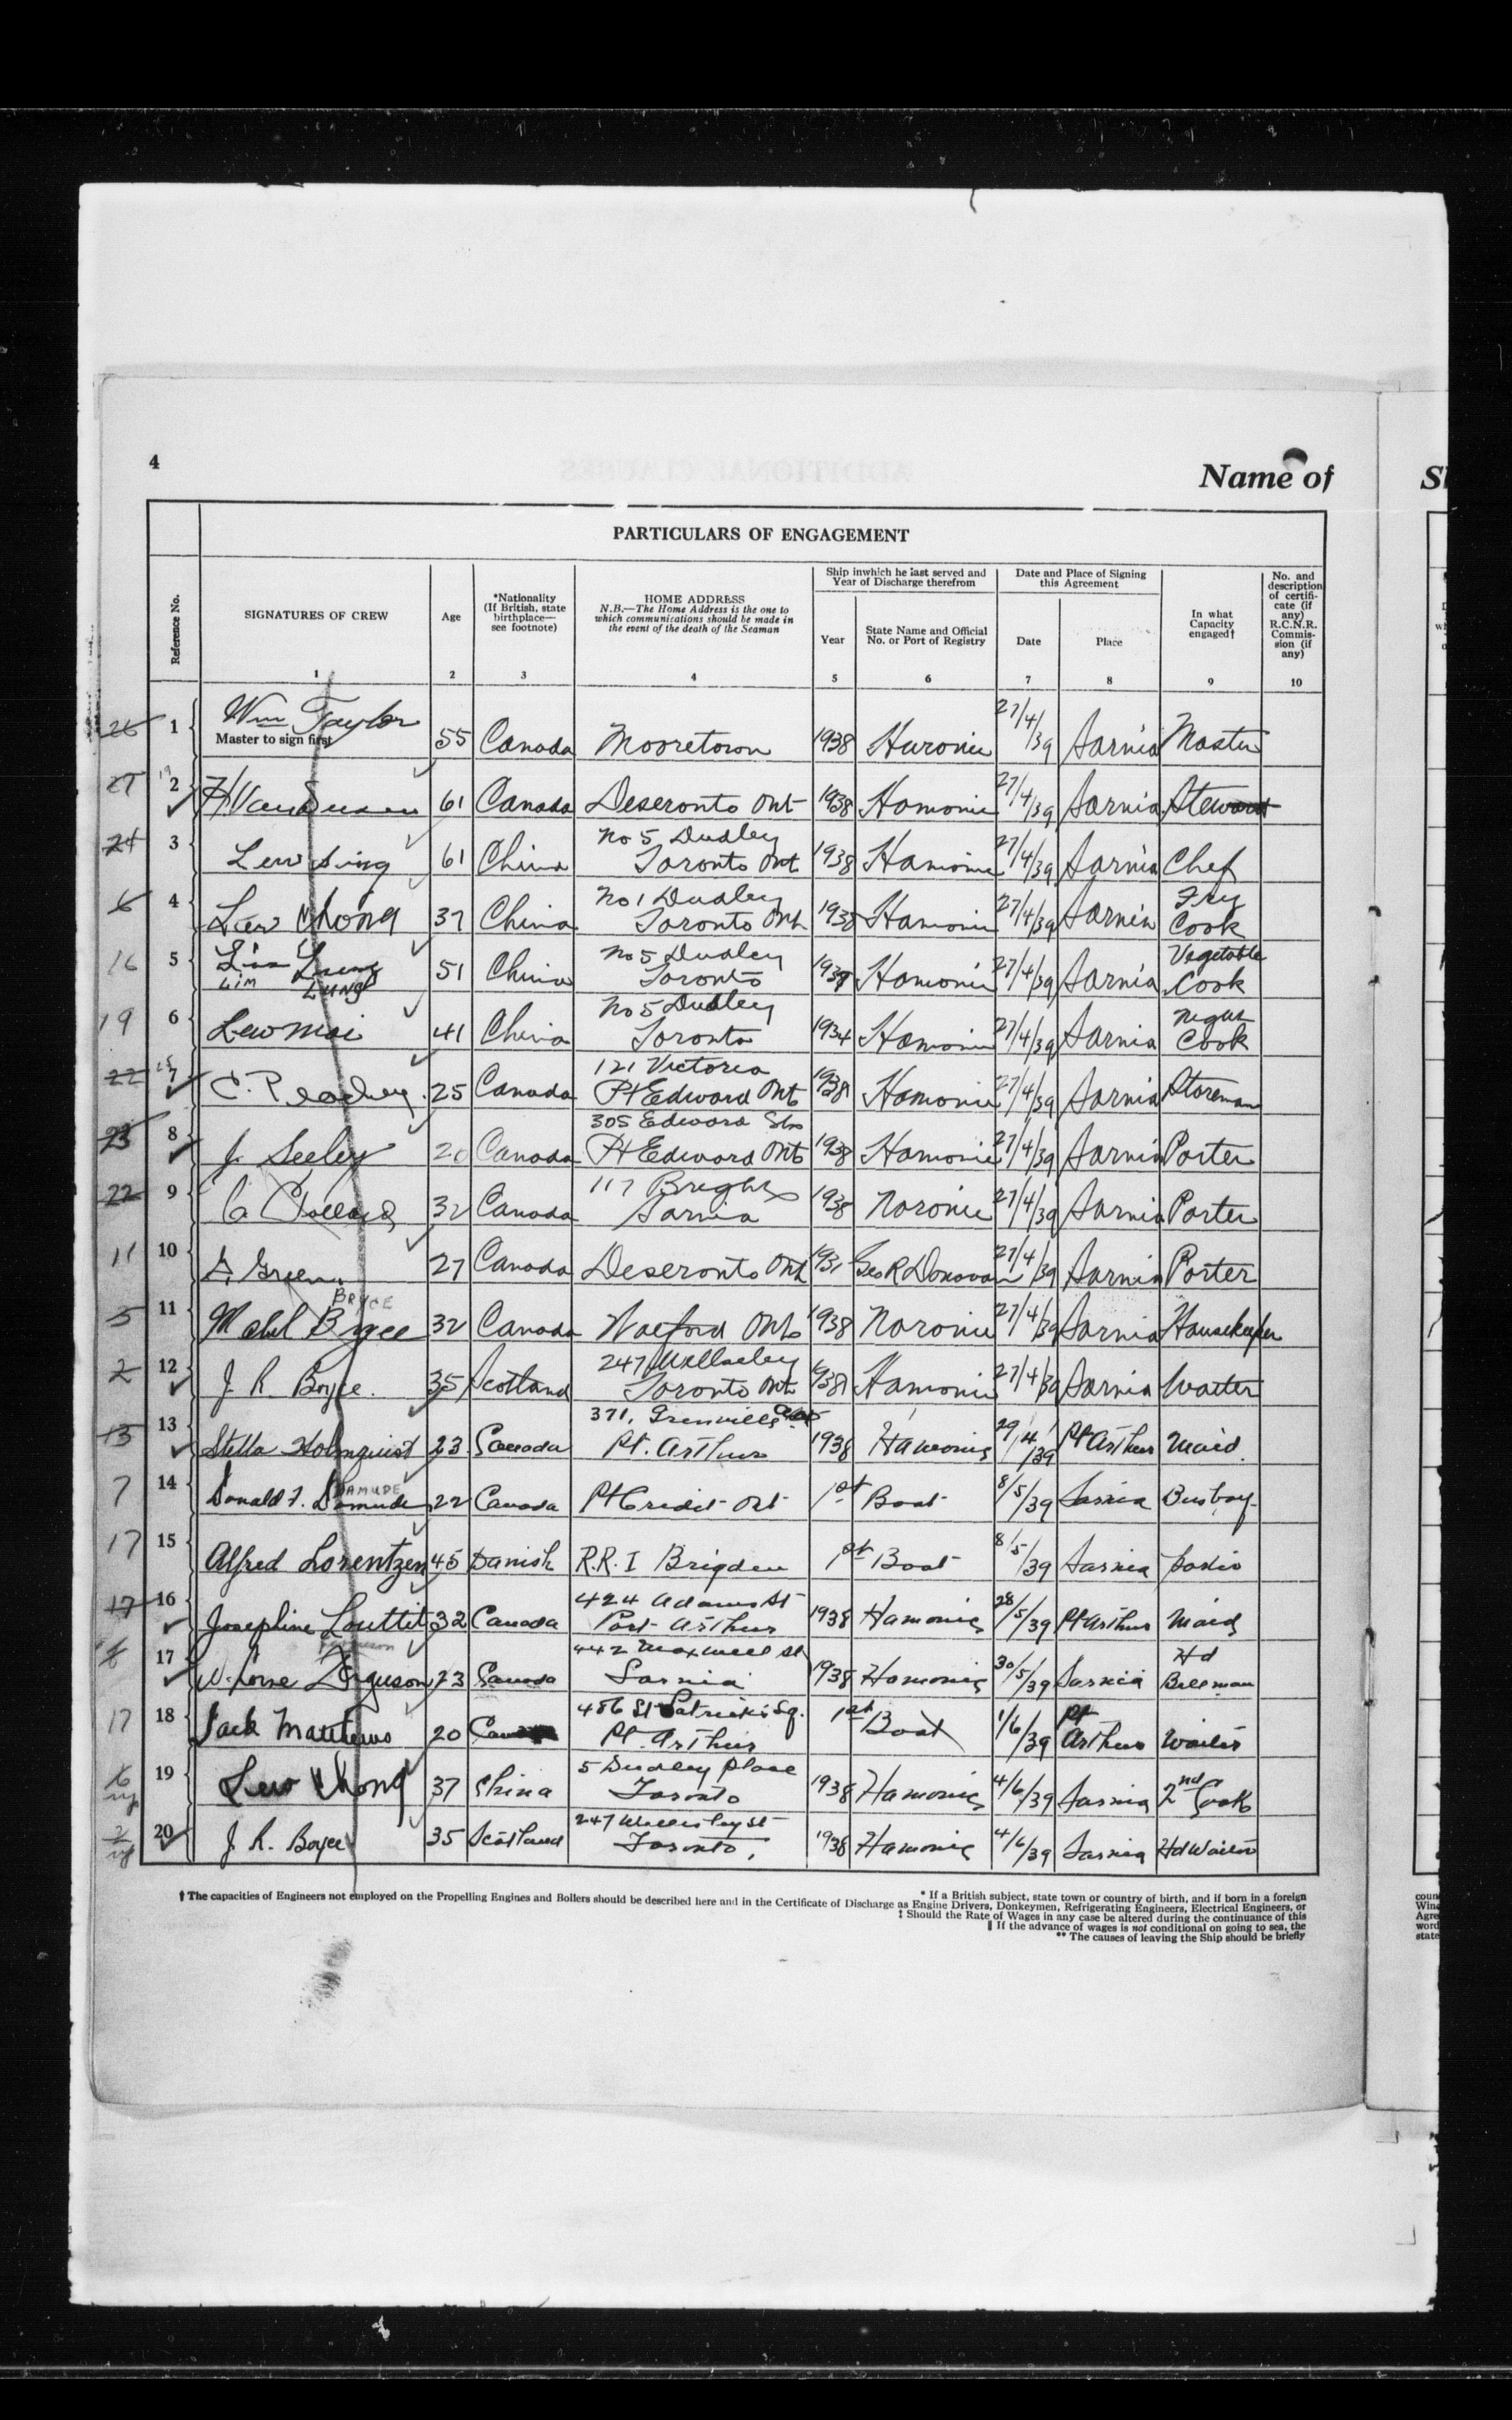 4
Name of
PARTICULARS OF ENGAGEMENT
Reference No.
SIGNATURES OF CREW
Age
*Nationality
(If British, state
birthplace—
see footnote)
HOME ADDRESS
N.B.—The Home Address is the one to
which communications should be made in
the event of the death of the Seaman
Ship inwhich he last served and
Year of Discharge therefrom
Year
State Name and Official
No. or Port of Registry
Date and Place of Signing
this Agreement
Date
Place
In what
Capacity
engaged†
No. and
description
of certifi-
cate (if
any)
R.C.N.R.
Commis-
sion (if
any)
1 2 3 4 5 6 7 8 9 10
1 Wm Taylor 55 Canada Mooretown 1938 Huronic 27/4/39 Sarnia Master
Master to sign first
2 61 Canada Deseronto Ont 1938 Hamonic 27/4/39 Sarnia Steward
No 5 Dudley
3 Lew Sing 61 China Toronto Ont 1938 Hamonic 27/4/39 Sarnia Chef
No 1 Dudley Fry
6 4 Lew Chong 37 China Toronto Ont 1938 Hamonic 27/4/39 Sarnia Cook
No 5 Dudley Vegetable
16 5 51 China Toronto Hamonic 27/4/39 Sarnia Cook
LIM LUNG
No 5 Dudley Night
19 6 Lew Moi 41 China Toronto 1934 Hamonic 27/4/39 Sarnia Cook
121 Victoria
22 7 C. Peachey 25 Canada Pt Edward Ont 1938 Hamonic 27/4/39 Sarnia Storeman
305 Edward
23 8 J. Seeley 20 Canada Pt Edward Ont 1938 Hamonic 27/4/39 Sarnia Porter
117 Bright
22 9 32 Canada Sarnia 1938 Noronic 27/4/39 Sarnia Porter
11 10 Green 27 Canada Deseronto Ont 1931 Geo R Donovan 27/4/39 Sarnia Porter
BRYCE
5 11 Mabel Bryce 32 Canada Ont 1938 Noronic 27/4/39 Sarnia Housekeeper
247 Wellesley
2 12 J. R. Boyce. 35 Scotland Toronto Ont 1938 Hamonic 27/4/39 Sarnia Waiter
371, Grenville
13 13 Stella Holmquist 23 Canada Pt. Arthur 1938 Hamonic 29/4/39 Pt Arthur Maid.
DAMUDE
7 14 Donald F. Damude 22 Canada Pt Credit Ont 1st Boat 8/5/39 Sarnia Busboy
17 15 Alfred Lorentzen 45 Danish R.R. I Brigden 1st Boat 8/5/39 Sarnia
424 Adams St
17 16 Josephine Louttit 32 Canada Port Arthur 1938 Hamonic 28/5/39 Pt Arthur Maid
Ferguson 442 Maxwell St Hd
17 W. Lorne Ferguson 23 Canada Sarnia 1938 Hamonic 30/5/39 Sarnia Bellman
486 St Patrick's Sq. Pt
17 18 Jack Matthews 20 Pt. Arthur 1st Boat 1/6/39 Arthur Waiter
5 Dudley Place
6 19 Lew Chong 37 China Toronto 1938 Hamonic 4/6/39 Sarnia 2nd Cook
247 Wellesley St
2 20 J. R. Boyce 35 Scotland Toronto, 1938 Hamonic 4/6/39 Sarnia Hd Waiter
† The capacities of Engineers not employed on the Propelling Engines and Boilers should be described here and in the Certificate of Discharge as Engine Drivers, Donkeymen, Refrigerating Engineers, Electrical Engineers, or
* If a British subject, state town or country of birth, and if born in a foreign
‡ Should the Rate of Wages in any case be altered during the continuance of this
‖ If the advance of wages is not conditional on going to sea, the
** The causes of leaving the Ship should be briefly